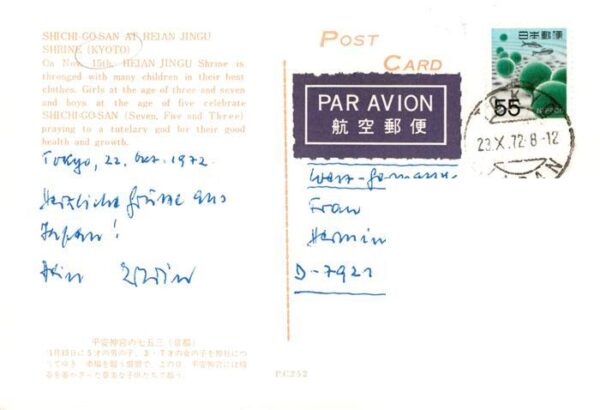 SHICHI-GO-SAN AT HEIAN JINGU
SHRINE (KYOTO)
On Nov. 15th, HEIAN JINGU Shrine is
thronged with many children in their best
clothes. Girls at the age of three and seven
and boys at the age of five celebrate
SHICHI-GO-SAN (Seven, Five and Three)
praying to a tutelary god for their good
health and growth.
Tokyo, 22. Okt. 1972
Herzliche Grüsse aus
Japan!
Dein Erwin
平安神宮の七五三(京都)
11月15日に5才の男の子、3・7才の女の子を神社につ
P.C.252
POST
CARD
PAR AVION
航空郵便
日本郵便
55
NIPPON
23.X.72.8-12
JAPAN
West-Germany
Frau
Hermin
D-7921